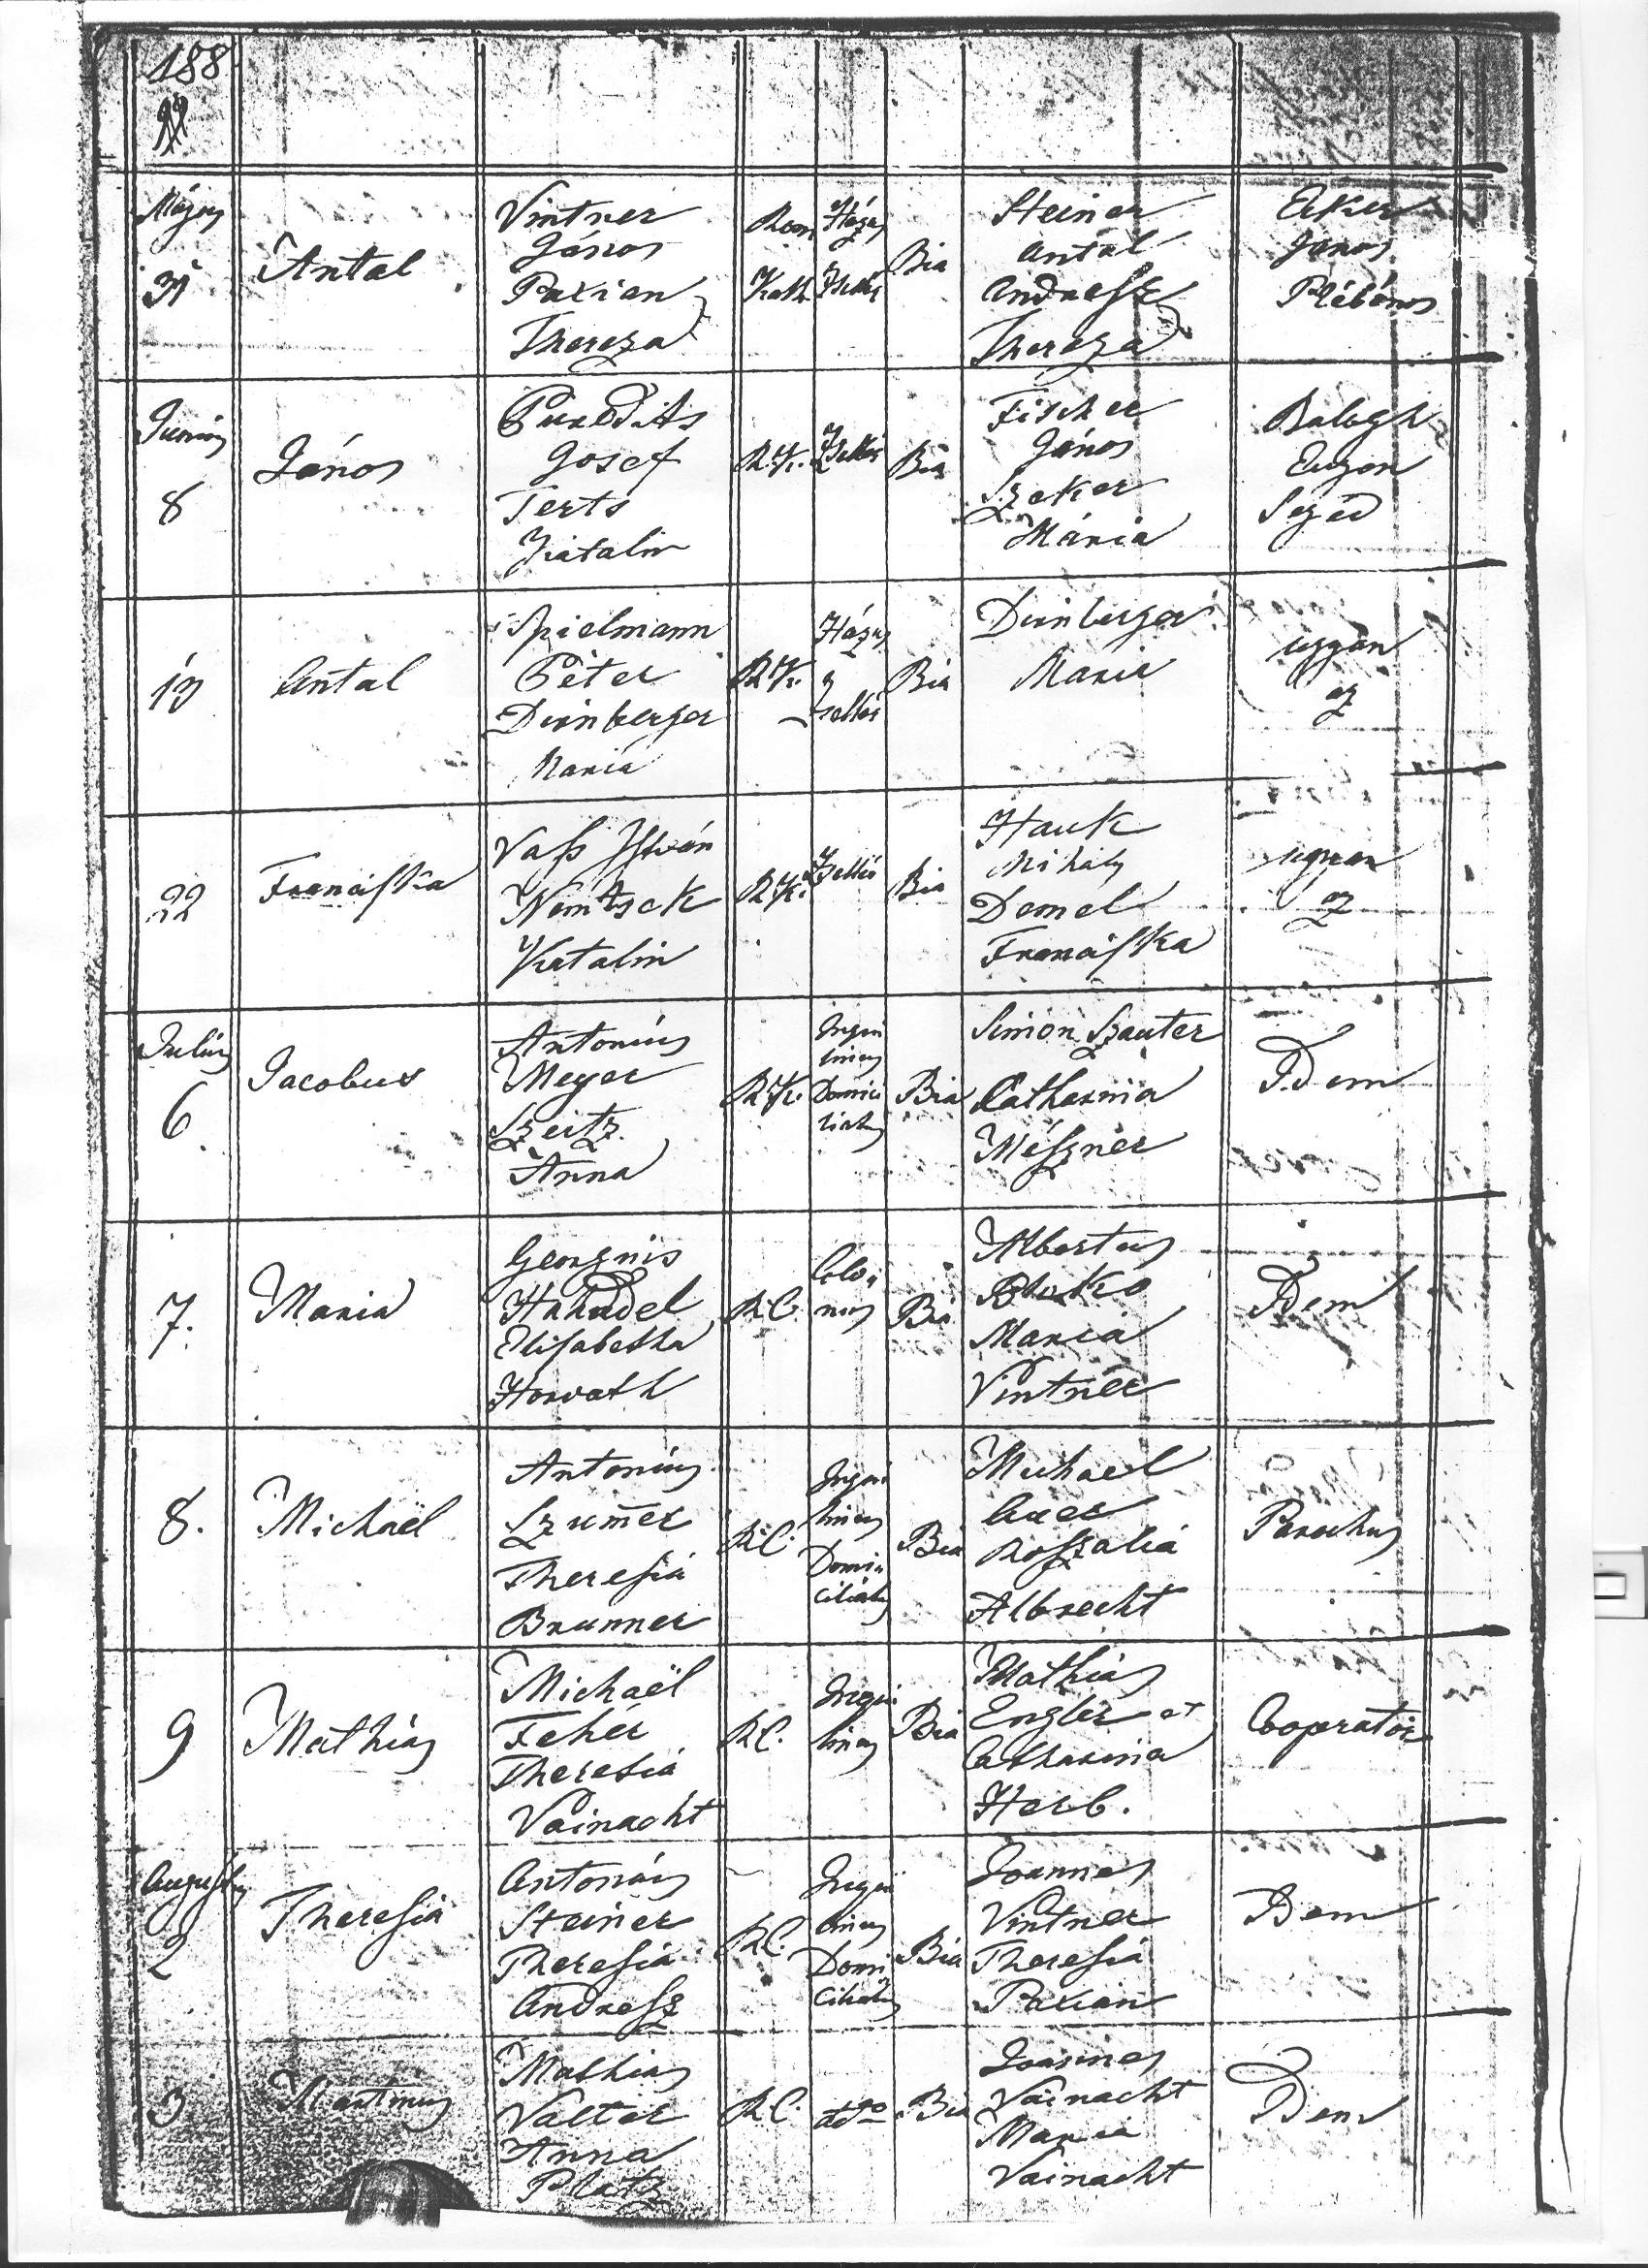 188
Május
31
Antal
Vintner
János
Paxian
Thereza
Rom
Kath
Házas
Zsellér
Bia
Steiner
Antal
Andresz
Thereza
Ecker
János
Plébános
Junius
8
János
Josef
Terts
Katalin
R.K.
Zsellér
Bia
Fischer
János
Szeker
Mária
Balogh
Segéd
13
Antal
Spielmann
Péter
Dirnberger
Maria
R.K.
Házas
Zsellér
Bia
Dirnberger
Maria
ugyan
az
22
Franciska
Vass István
Németsek
Katalin
R.K.
Zsellér
Bia
Hauk
Mihály
Demel
Franciska
ugyan
az
Julius
6
Jacobus
Antonius
Meyer
Szeitz
Anna
R.K.
Inqui
linus
Domici
liatus
Bia
Simon Szauter
Catharina
Mészner
Idem
7.
Maria
Georgius
Elisabetha
Horvath
R.C.
Colo
nus
Bia
Albertus
Maria
Vintner
Idem
8.
Michaël
Antonius
Szum̄er
Theresia
Brunner
R.C.
Inqui
linus
Domi
ciliatus
Bia
Michael
Auer
Roszalia
Albrecht
Parochus
9
Mathias
Michaël
Fehér
Theresia
Vainacht
R.C.
Inqui
linus
Bia
Mathias
Engler et
Catharina
Herb.
Cooperator
Augustus
2
Theresia
Antonius
Steiner
Theresia
Andresz
R.C.
Inqui
linus
Domi
ciliatus
Bia
Joannes
Vintner
Theresia
Paxian
Idem
3
Martinus
Mathias
Valter
Anna
Platz
R.C.
detto
Bia
Joannes
Vainacht
Maria
Vainacht
Idem